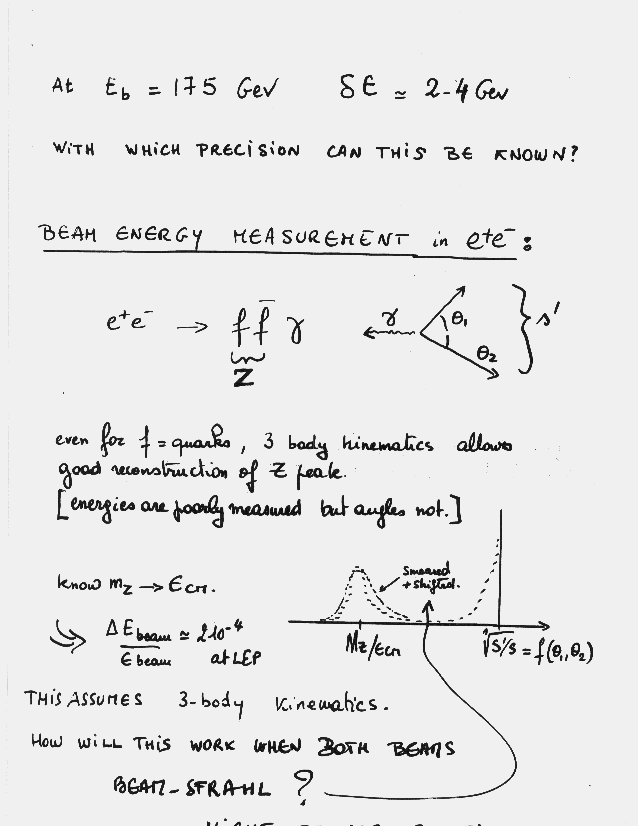 At E_b = 175 GeV δE ≃ 2-4 GeV
WITH WHICH PRECISION CAN THIS BE KNOWN?
BEAM ENERGY MEASUREMENT in e+e- :
e+e- → f f̄ γ
Z
γ θ1 θ2 } s'
even for f = quarks, 3 body kinematics allows
good reconstruction of Z peak.
[energies are poorly measured but angles not.]
know m_Z → E_cm.
↪ ΔE_beam / E_beam ≃ 2 10^-4 at LEP
Smeared
+ shifted.
M_Z/E_cm
√s'/s = f(θ1, θ2)
THIS ASSUMES 3-body Kinematics.
HOW WILL THIS WORK WHEN BOTH BEAMS
BEAM-STRAHL ?